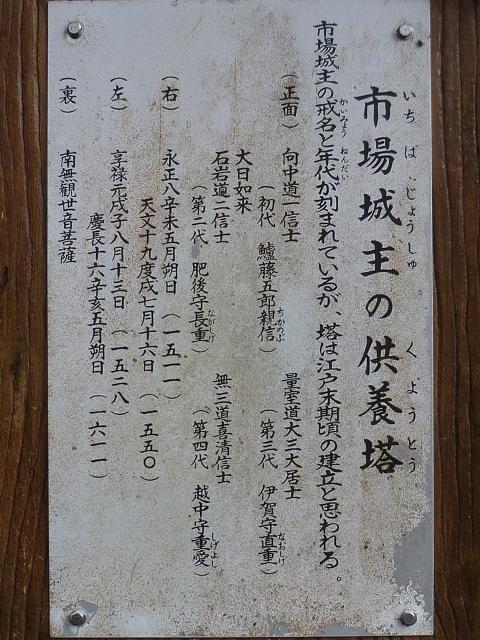 市場城主の供養塔
いちばじょうしゅ くようとう
市場城主の戒名と年代が刻まれているが、塔は江戸末期頃の建立と思われる。
かいみょう ねんだい
（正面） 向中道一信士 量室道大三大居士
（初代 鱸藤五郎親信） （第三代 伊賀守直重）
ちかのぶ なおしげ
大日如来
石岩道二信士 無三道喜清信士
（第二代 肥後守長重） （第四代 越中守重愛）
ながしげ しげよし
（右） 永正八辛未五月朔日 （一五一一）
天文十九庚戌七月十六日 （一五五〇）
（左） 享禄元戊子八月十三日 （一五二八）
慶長十六辛亥五月朔日 （一六一一）
（裏） 南無観世音菩薩